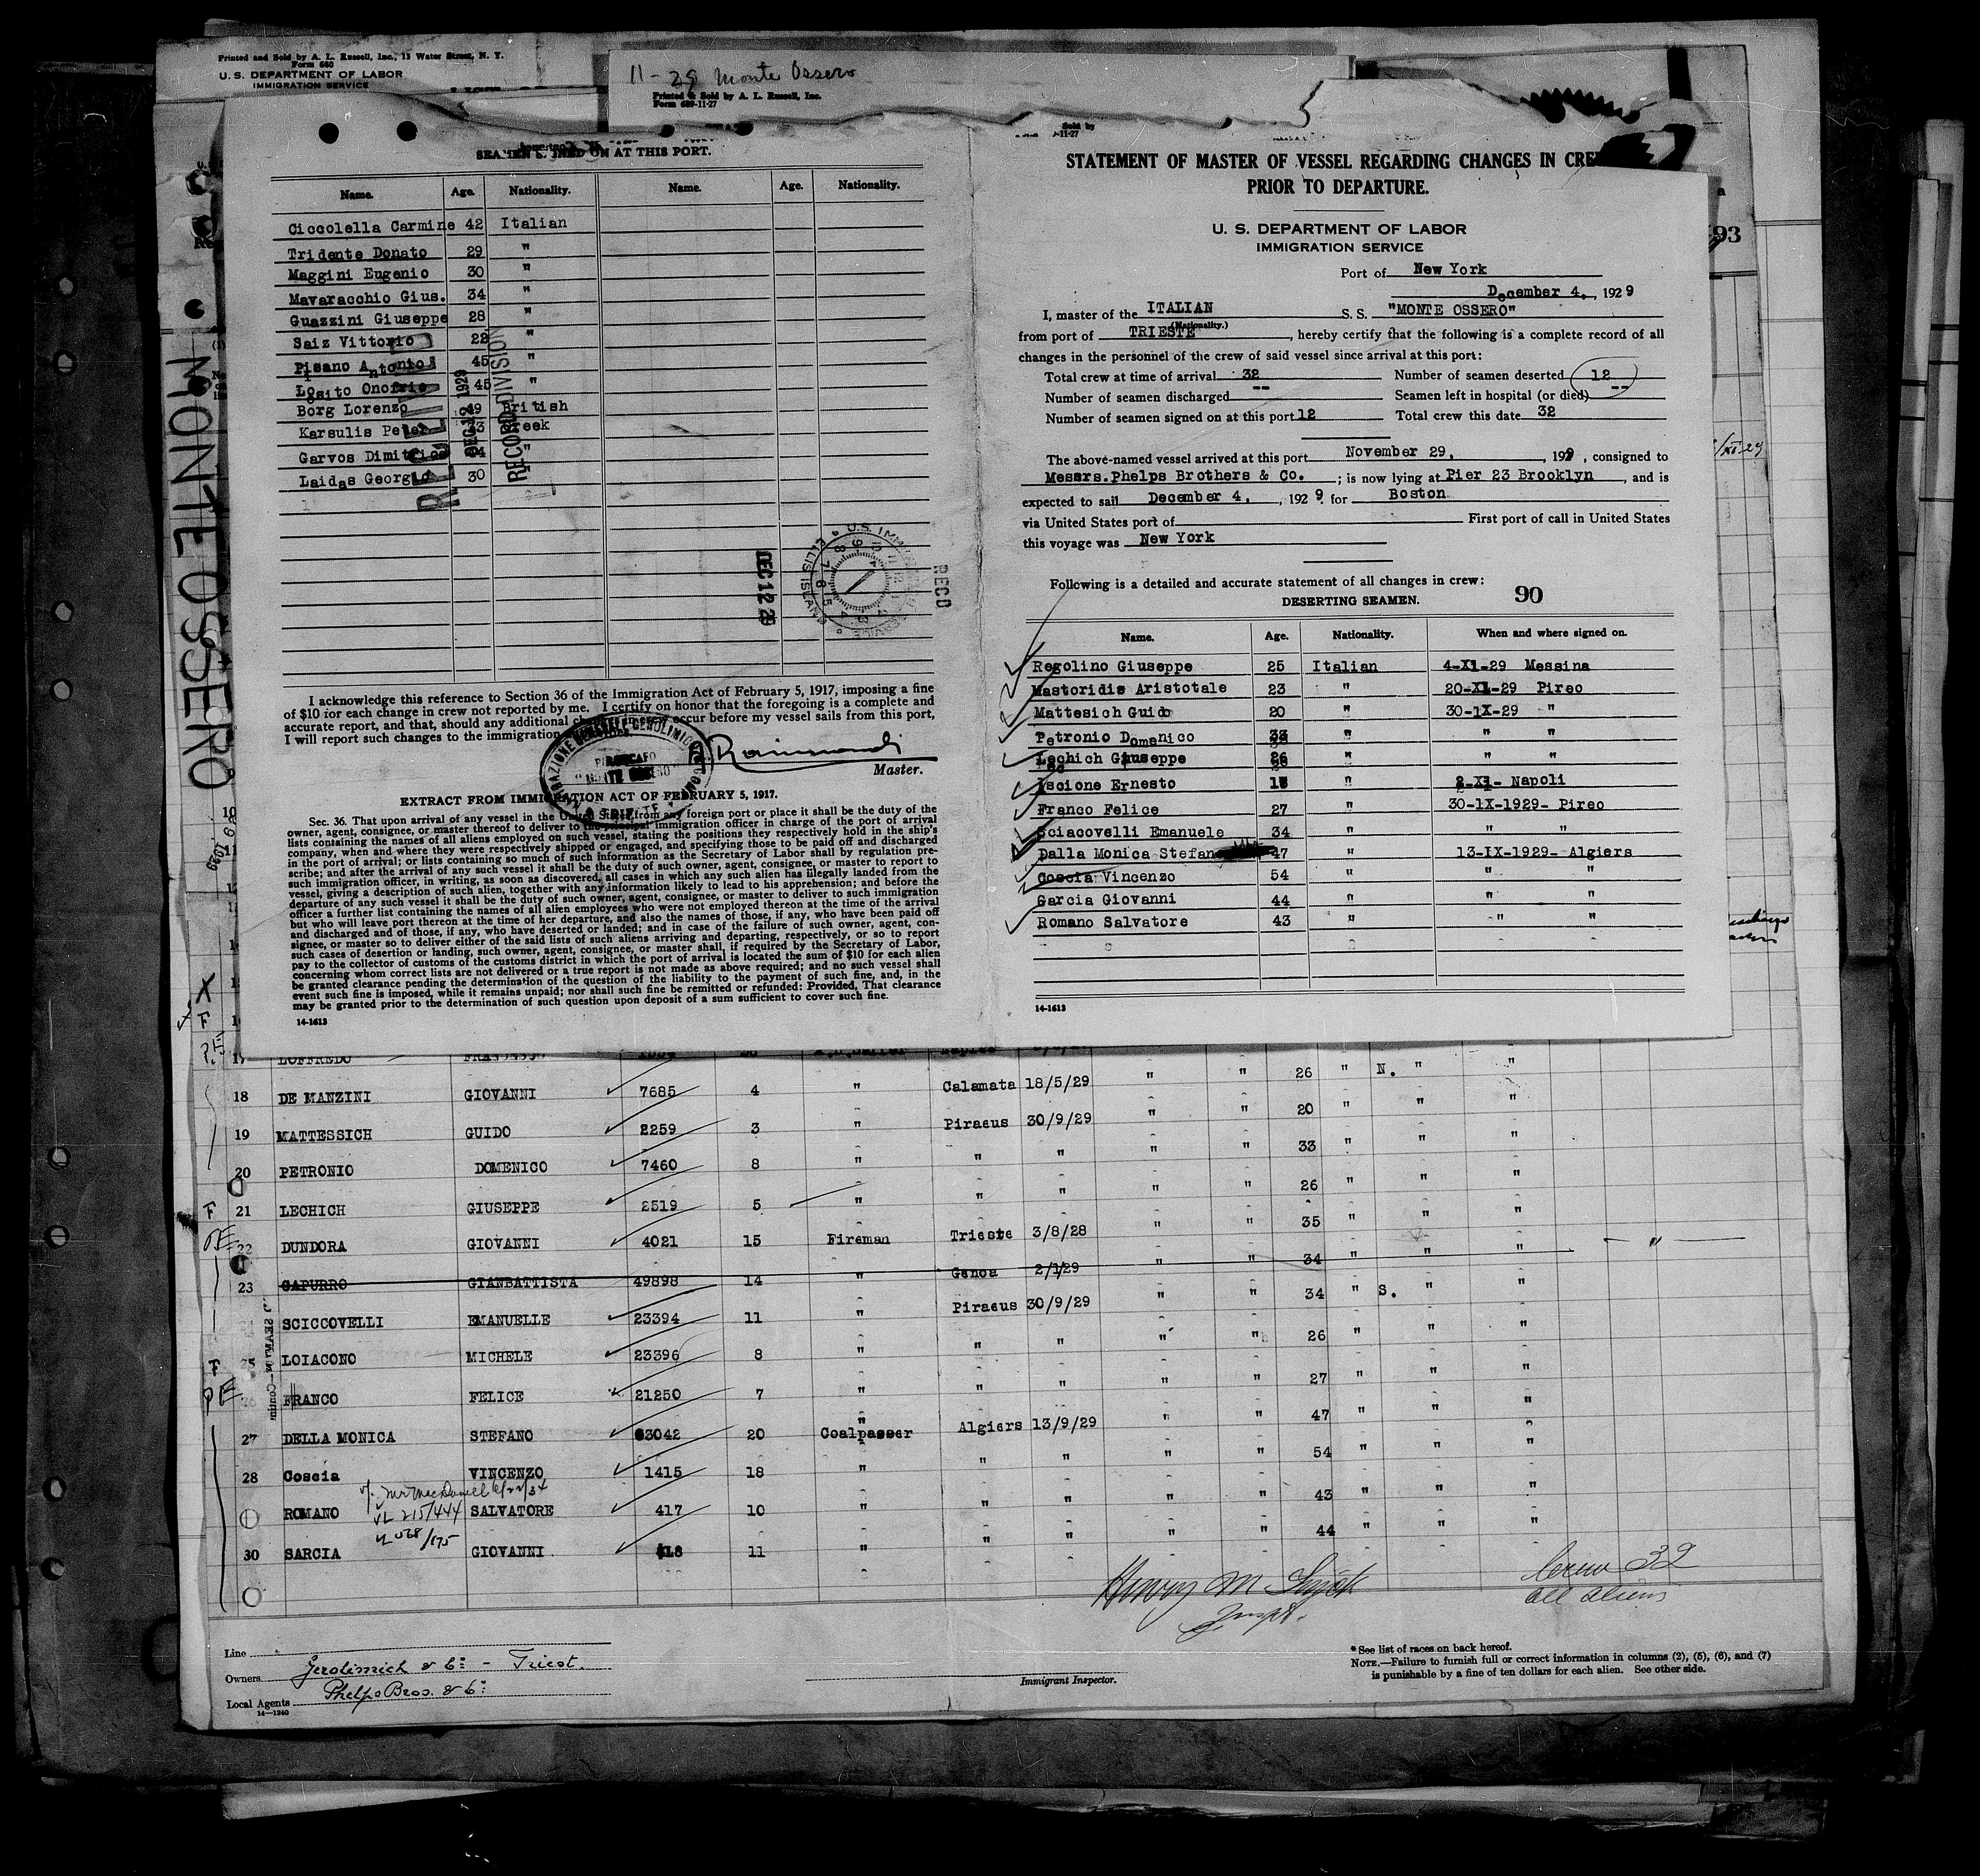 Printed and Sold by A. L. Russell, Inc., 13 Water Street, N. Y.
Form 680
U. S. DEPARTMENT OF LABOR
IMMIGRATION SERVICE
11-29 Monte Ossero
Printed & Sold by A. L. Russell, Inc.
Form 689-11-27
MONTE OSSERO
SEAMEN SIGNED ON AT THIS PORT.
Name. Age. Nationality. Name. Age. Nationality.
Ciccolella Carmine 42 Italian
Tridente Donato 29 "
Maggini Eugenio 30 "
Mavaracchio Gius. 34 "
Guazzini Giuseppe 28 "
Saiz Vittorio 22 "
Pisano Antonio 45 "
Losito Onofrio 45 "
Borg Lorenzo 49 British
Karsulis Peter 43 Greek
Garvos Dimitrios "
Laidas Georgio 30
RECEIVED
DEC 12 1929
RECORD DIVISION
DEC 12 29
U.S. IMMIGRATION SERVICE
ELLIS ISLAND
RECD
I acknowledge this reference to Section 36 of the Immigration Act of February 5, 1917, imposing a fine
of $10 for each change in crew not reported by me. I certify on honor that the foregoing is a complete and
accurate report, and that, should any additional changes in crew occur before my vessel sails from this port,
I will report such changes to the immigration
Raimondi
Master.
PIROSCAFO
"MONTE OSSERO"
TRIESTE
EXTRACT FROM IMMIGRATION ACT OF FEBRUARY 5, 1917.
Sec. 36. That upon arrival of any vessel in the United States from any foreign port or place it shall be the duty of the
owner, agent, consignee, or master thereof to deliver to the principal immigration officer in charge of the port of arrival
lists containing the names of all aliens employed on such vessel, stating the positions they respectively hold in the ship's
company, when and where they were respectively shipped or engaged, and specifying those to be paid off and discharged
in the port of arrival; or lists containing so much of such information as the Secretary of Labor shall by regulation pre-
scribe; and after the arrival of any such vessel it shall be the duty of such owner, agent, consignee, or master to report to
such immigration officer, in writing, as soon as discovered, all cases in which any such alien has illegally landed from the
vessel, giving a description of such alien, together with any information likely to lead to his apprehension; and before the
departure of any such vessel it shall be the duty of such owner, agent, consignee, or master to deliver to such immigration
officer a further list containing the names of all alien employees who were not employed thereon at the time of the arrival
but who will leave port thereon at the time of her departure, and also the names of those, if any, who have been paid off
and discharged and of those, if any, who have deserted or landed; and in case of the failure of such owner, agent, con-
signee, or master so to deliver either of the said lists of such aliens arriving and departing, respectively, or so to report
such cases of desertion or landing, such owner, agent, consignee, or master shall, if required by the Secretary of Labor,
pay to the collector of customs of the customs district in which the port of arrival is located the sum of $10 for each alien
concerning whom correct lists are not delivered or a true report is not made as above required; and no such vessel shall
be granted clearance pending the determination of the question of the liability to the payment of such fine, and, in the
event such fine is imposed, while it remains unpaid; nor shall such fine be remitted or refunded: Provided, That clearance
may be granted prior to the determination of such question upon deposit of a sum sufficient to cover such fine.
14-1613
STATEMENT OF MASTER OF VESSEL REGARDING CHANGES IN CREW
PRIOR TO DEPARTURE.
U. S. DEPARTMENT OF LABOR
IMMIGRATION SERVICE
Port of New York
December 4, 1929
I, master of the ITALIAN S. S. "MONTE OSSERO"
(Nationality.)
from port of TRIESTE, hereby certify that the following is a complete record of all
changes in the personnel of the crew of said vessel since arrival at this port:
Total crew at time of arrival 32 Number of seamen deserted 12
Number of seamen discharged -- Seamen left in hospital (or died) --
Number of seamen signed on at this port 12 Total crew this date 32
The above-named vessel arrived at this port November 29, 1929, consigned to
Messrs. Phelps Brothers & Co.; is now lying at Pier 23 Brooklyn, and is
expected to sail December 4, 1929 for Boston
via United States port of First port of call in United States
this voyage was New York
Following is a detailed and accurate statement of all changes in crew:
DESERTING SEAMEN. 90
Name. Age. Nationality. When and where signed on.
Regolino Giuseppe 25 Italian 4-XI-29 Messina
Mastoridis Aristotale 23 " 20-XI-29 Pireo
Mattesich Guido 20 " 30-IX-29 "
Petronio Domenico 33 " " "
Lechich Giuseppe 26 " " "
Iscione Ernesto " 2-XI- Napoli
Franco Felice 27 " 30-IX-1929- Pireo
Sciacovelli Emanuele 34 " " "
Dalla Monica Stefan 47 " 13-IX-1929- Algiers
Coscia Vincenzo 54 " " "
Garcia Giovanni 44 " " "
Romano Salvatore 43 " " "
14-1613
93
17 LOFFREDO
18 DE MANZINI GIOVANNI 7685 4 " Calamata 18/5/29 " " 26 " N. " "
19 MATTESSICH GUIDO 2259 3 " Piraeus 30/9/29 " " 20 " " "
20 PETRONIO DOMENICO 7460 8 " " " " " 33 " " "
F 21 LECHICH GIUSEPPE 2519 5 " " " " " 26 " " "
22 DUNDORA GIOVANNI 4021 15 Fireman Trieste 3/8/28 " " 35 " " "
23 CAPURRO GIANBATTISTA 49898 14 " Genoa 2/1/29 " " 34 " " " "
SCICCOVELLI EMANUELLE 23394 11 " Piraeus 30/9/29 " " 34 " S. " "
F 25 LOIACONO MICHELE 23396 8 " " " " " 26 " " "
PE 26 FRANCO FELICE 21250 7 " " " " " 27 " " "
27 DELLA MONICA STEFANO 63042 20 Coalpasser Algiers 13/9/29 " " 47 " " "
28 Coscia VINCENZO 1415 18 " " " " " 54 " " "
ROMANO SALVATORE 417 10 " " " " " 43 " " "
30 SARCIA GIOVANNI 418 11 " " " " " 44 " " "
Crew 32
all aliens
Line
Owners Gerolimich & Co. - Triest.
Local Agents Phelps Bros. & Co.
14-1240
Immigrant Inspector.
* See list of races on back hereof.
NOTE.—Failure to furnish full or correct information in columns (2), (5), (6), and (7)
is punishable by a fine of ten dollars for each alien. See other side.